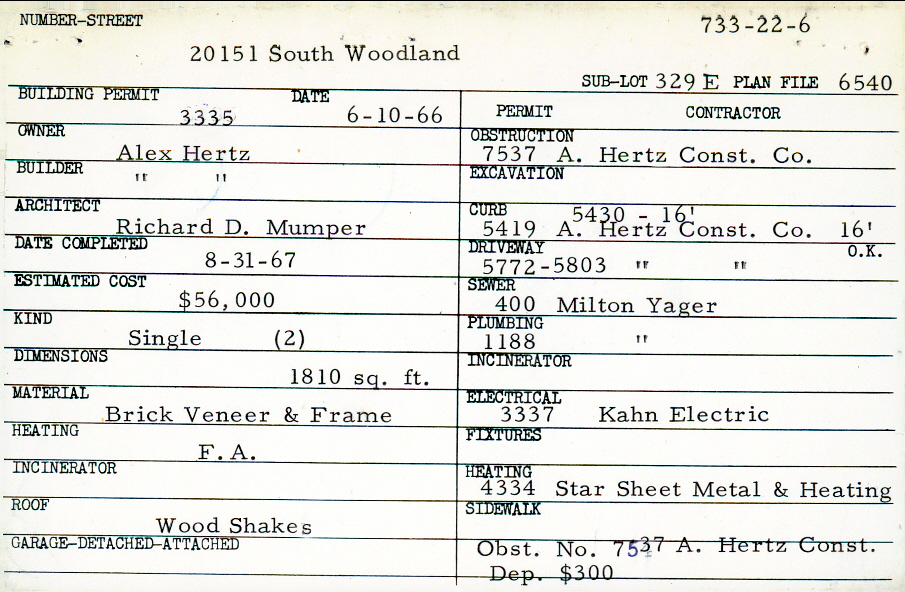 NUMBER-STREET
733-22-6
20151 South Woodland
SUB-LOT 329 E PLAN FILE 6540
BUILDING PERMIT DATE
3335 6-10-66
OWNER
Alex Hertz
BUILDER
" "
ARCHITECT
Richard D. Mumper
DATE COMPLETED
8-31-67
ESTIMATED COST
$56,000
KIND
Single (2)
DIMENSIONS
1810 sq. ft.
MATERIAL
Brick Veneer & Frame
HEATING
F.A.
INCINERATOR
ROOF
Wood Shakes
GARAGE-DETACHED-ATTACHED
PERMIT CONTRACTOR
OBSTRUCTION
7537 A. Hertz Const. Co.
EXCAVATION
CURB 5430 - 16'
5419 A. Hertz Const. Co. 16'
DRIVEWAY O.K.
5772-5803 " "
SEWER
400 Milton Yager
PLUMBING
1188 "
INCINERATOR
ELECTRICAL
3337 Kahn Electric
FIXTURES
HEATING
4334 Star Sheet Metal & Heating
SIDEWALK
Obst. No. 7537 A. Hertz Const.
Dep. $300